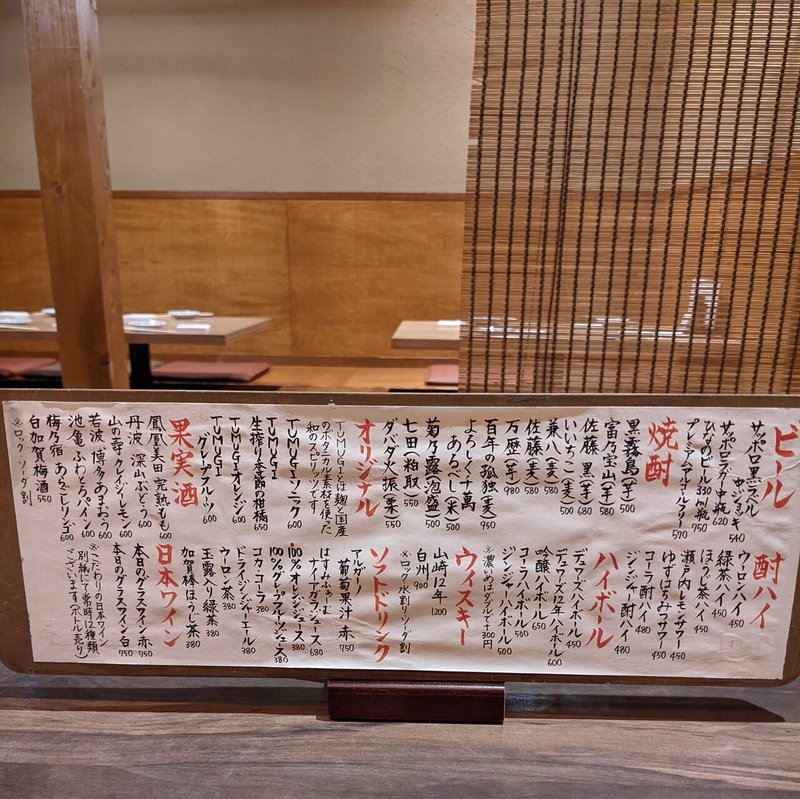 ビール
サッポロ黒ラベル
中ジョッキ 540
サッポロラガー中瓶 620
ひなのビール330ml瓶 750
プレミアムアルコールフリー 570
焼酎
黒霧島(芋) 500
富乃宝山(芋) 580
佐藤 黒(芋) 680
いいちこ(麦) 500
佐藤(麦) 580
兼八(麦) 580
万歴(芋) 980
百年の孤独(麦) 950
よろしく千萬
あるべし(米) 500
菊乃露(泡盛) 500
七田(粕取) 550
ダバダ火振(栗) 550
オリジナル
TUMUGIとは麹と国産
のボタニカル素材を使った
和のスピリッツです
TUMUGIソニック 600
TUMUGI
生搾り本季節の柑橘 650
TUMUGIオレンジ 600
TUMUGI
グレープフルーツ 600
果実酒
鳳凰美田 完熟もも 600
丹波 深山ぶどう 600
山の寿 クレイジーレモン 600
若波 博多あまおう 600
池亀 ふわとろパイン 600
梅乃宿 あらごしリンゴ 600
白加賀梅酒 550
※ロック、ソーダ割
酎ハイ
ウーロンハイ 450
緑茶ハイ 450
ほうじ茶ハイ 450
瀬戸内レモンサワー 450
ゆずはちみつサワー 450
コーラ酎ハイ 480
ジンジャー酎ハイ 480
ハイボール
デュワーズハイボール 450
デュワーズ12年ハイボール 600
吟醸ハイボール 650
コーラハイボール 500
ジンジャーハイボール 500
※濃いめはプラして+300円
ウィスキー
山崎12年 1200
白州 900
※ロック、水割り、ソーダ割
ソフトドリンク
アルガーノ
葡萄果汁 赤 750
はすみふぁーむ
ナイアガラジュース 680
100%オレンジジュース 380
100%グレープフルーツジュース 380
コカ・コーラ 380
ドライジンジャーエール 380
ウーロン茶 380
玉露入り緑茶 380
加賀棒ほうじ茶 380
日本ワイン
本日のグラスワイン・赤 750
本日のグラスワイン・白 750
※こだわりの日本ワイン
別紙にて常時12種類
ございます(ボトル売り)